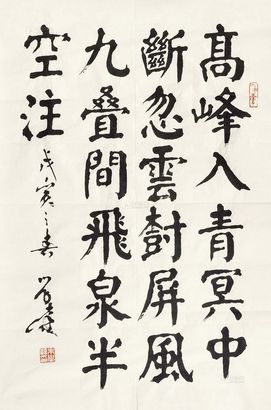 髙峰入青冥中
斷忽雲封屏風
九疊間飛泉半
空注
戊寅之春